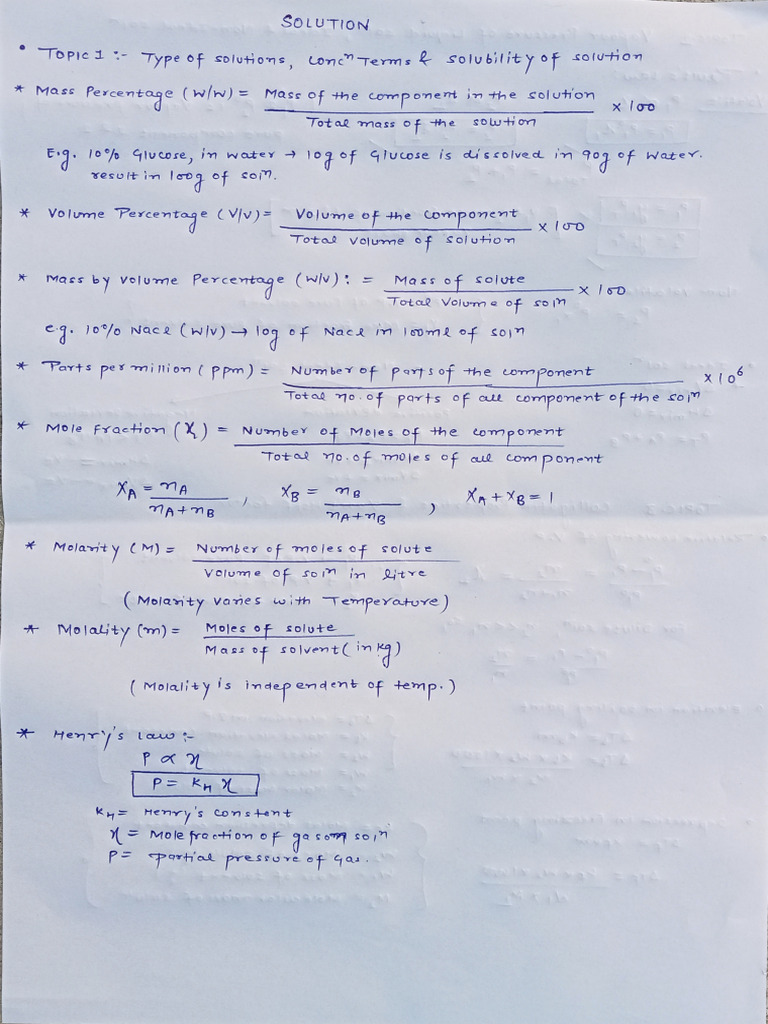 SOLUTION
• TOPIC 1 :- Type of solutions, concⁿ Terms & solubility of solution
* Mass Percentage (W/W) = Mass of the component in the solution / Total mass of the solution × 100
E.g. 10% Glucose, in water → 10g of Glucose is dissolved in 90g of water.
result in 100g of solⁿ.
* Volume Percentage (V/V) = Volume of the component / Total volume of solution × 100
* Mass by volume Percentage (W/V) : = Mass of solute / Total Volume of solⁿ × 100
e.g. 10% Nacl (W/V) → 10g of Nacl in 100ml of solⁿ
* Parts per million (ppm) = Number of parts of the component / Total no. of parts of all component of the solⁿ × 10⁶
* Mole fraction (χ) = Number of Moles of the component / Total no. of moles of all component
χA = nA / nA + nB , χB = nB / nA + nB , χA + χB = 1
* Molarity (M) = Number of moles of solute / Volume of solⁿ in litre
(Molarity varies with Temperature)
* Molality (m) = Moles of solute / Mass of solvent (in kg)
(Molality is independent of temp.)
* Henry's law :-
P ∝ χ
P = KH χ
KH = Henry's constent
χ = Mole fraction of gas solⁿ
P = partial pressure of Gas.